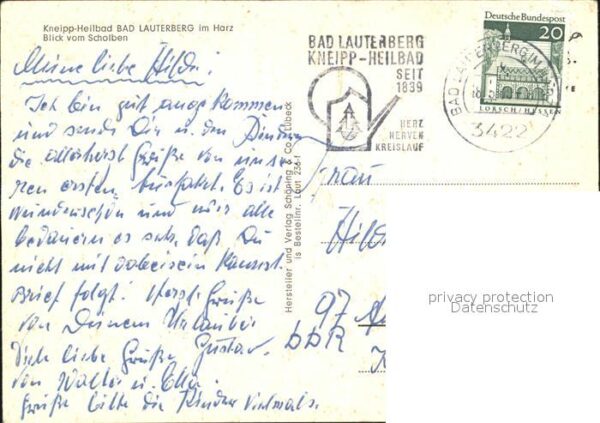 Kneipp-Heilbad BAD LAUTERBERG im Harz
Blick vom Scholben
Meine liebe Hilde!
Ich bin gut angekommen
und sende Dir u. den Kindern
die allerherzl. Grüße von unse-
ren ersten Ausfahrt. Es ist
wunderschön und wir alle
bedauern es sehr, daß Du
nicht mit dabeisein kannst.
Brief folgt! Herzl. Grüße
von Deinem Urlauber
Gustav.
Viele liebe Grüße
von Walter u. Ella.
Grüße bitte die Kinder vielmals.
Hersteller und Verlag Schöning & Co., Lübeck
is Bestellnr. Laut 236-1
BAD LAUTERBERG
KNEIPP-HEILBAD
SEIT
1839
HERZ
NERVEN
KREISLAUF
Deutsche Bundespost
20
LORSCH/HESSEN
BAD LAUTERBERG IM
3422
Frau
Hild
97
DDR
privacy protection
Datenschutz